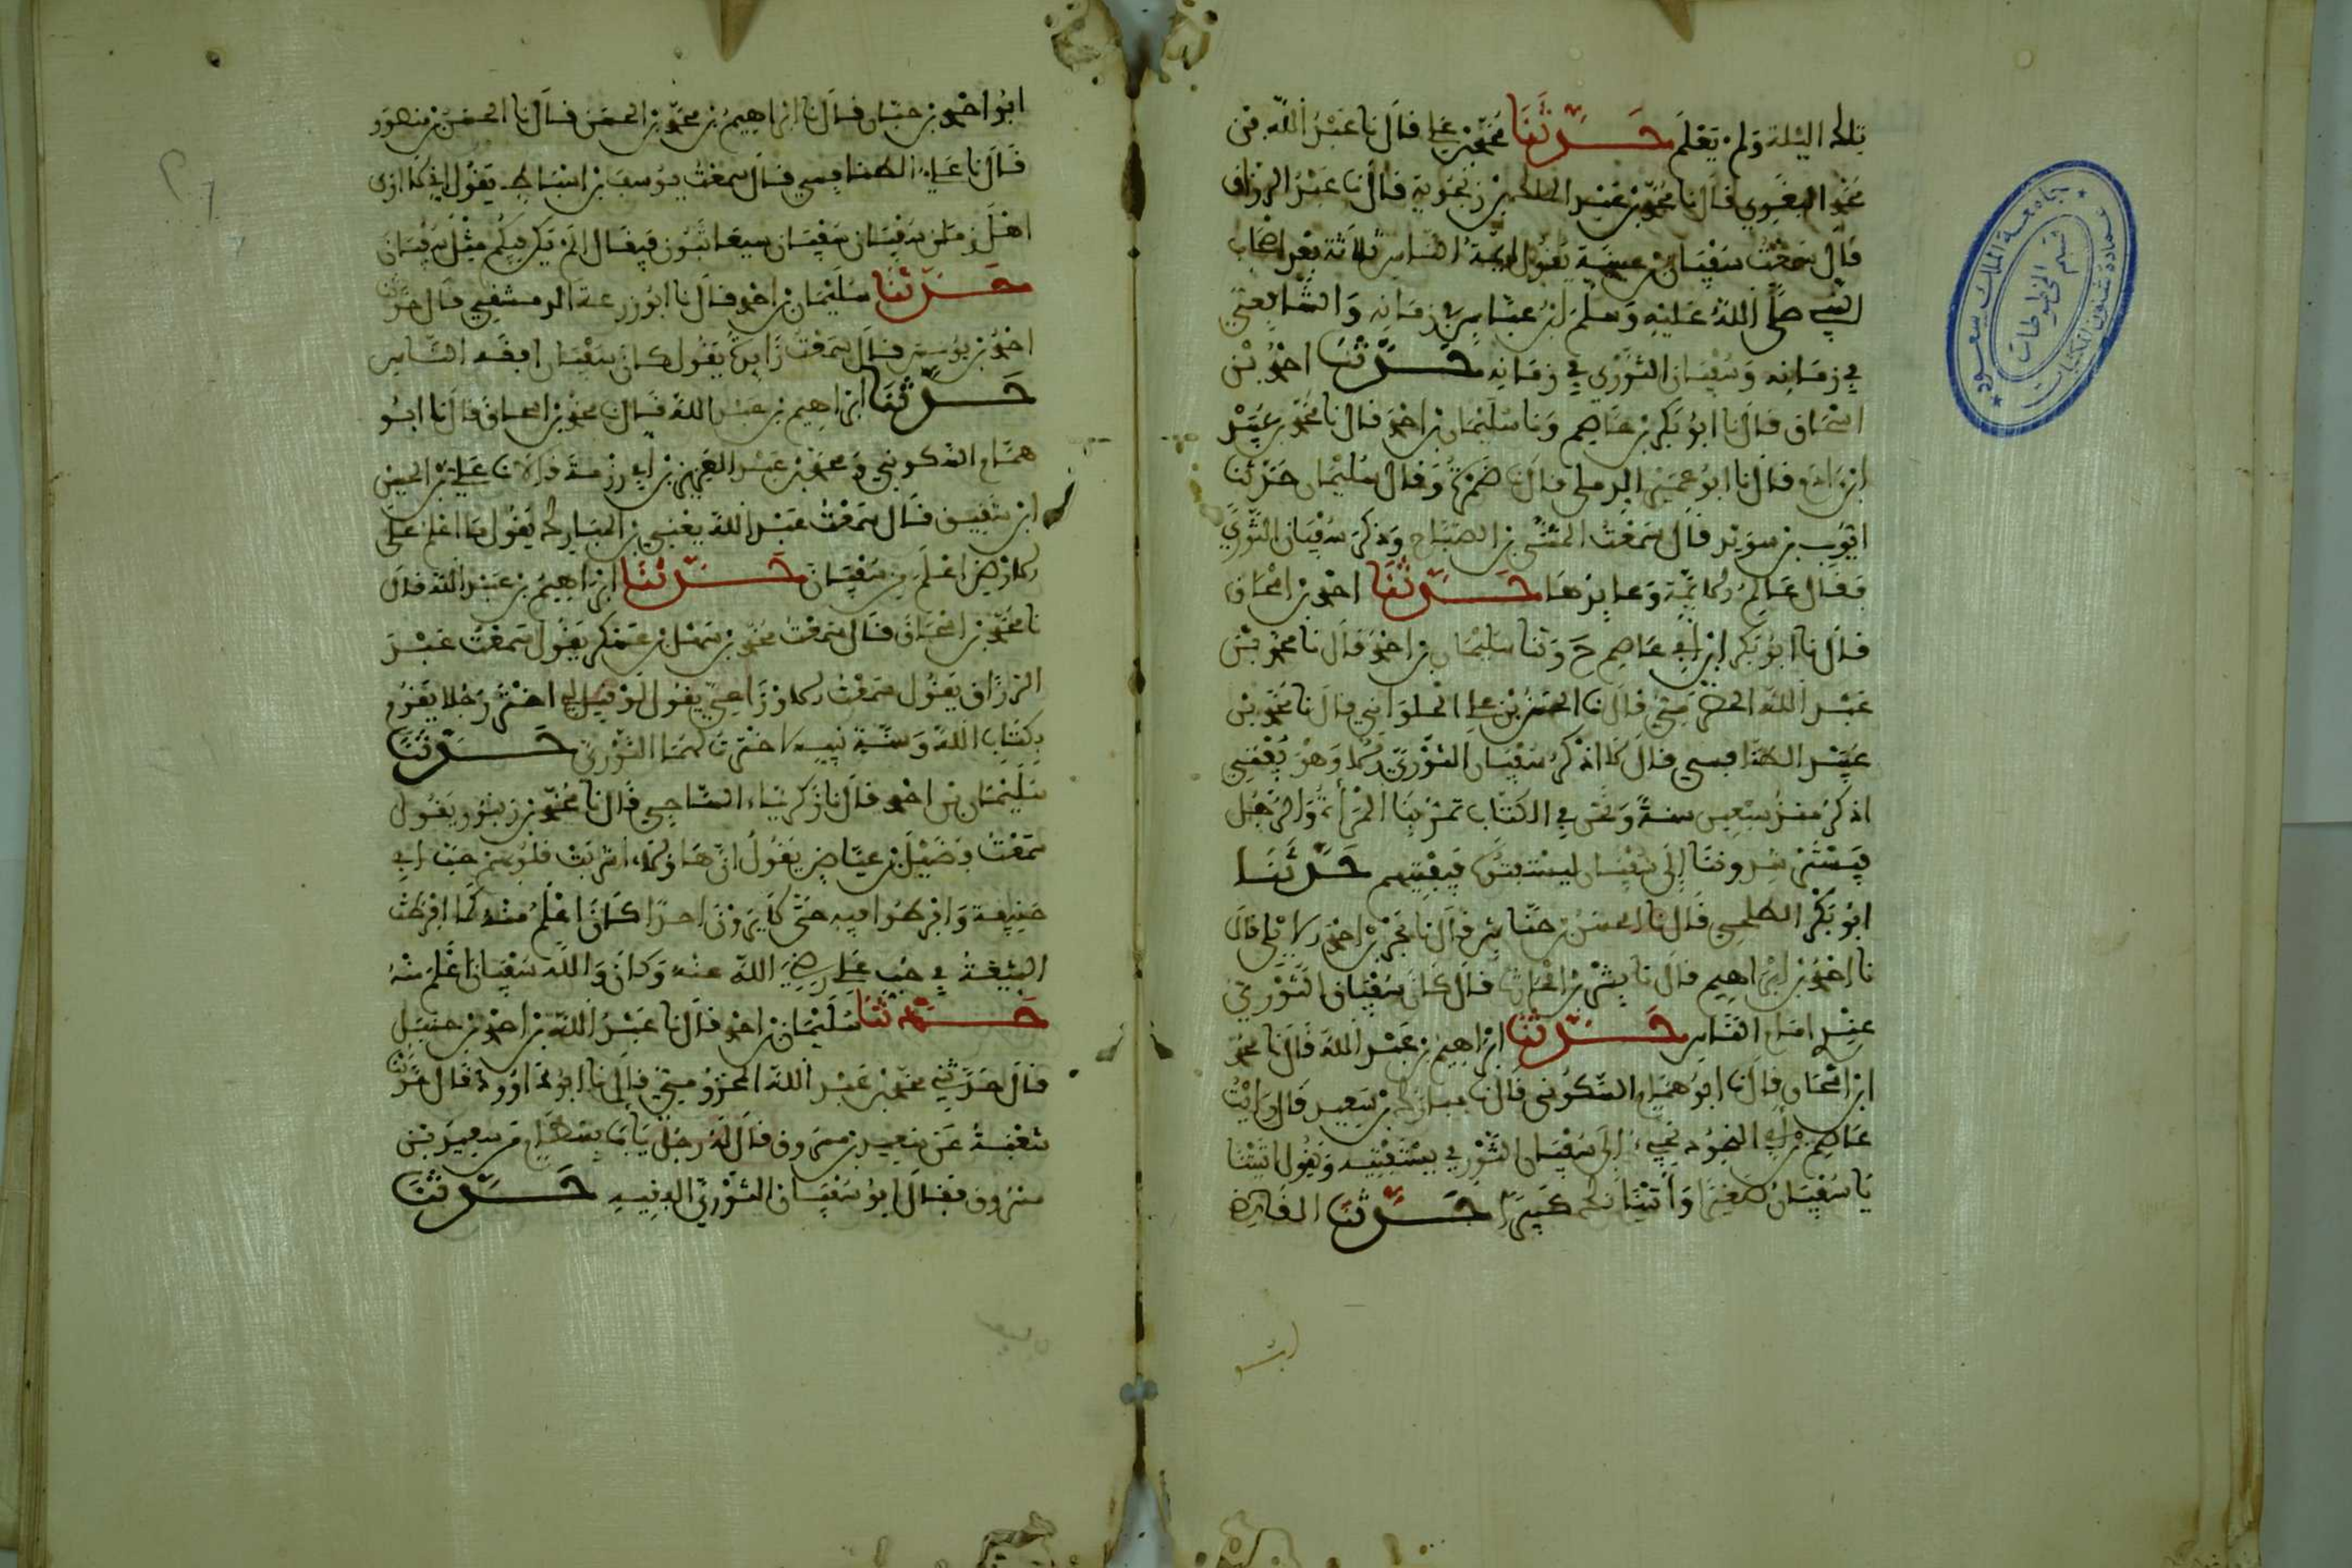 تلك الليلة ولم يعلم حَدَّثَنَا محمد بن علي قال نا عبد الله بن
محمد البغوي قال نا محمد بن عبد الملك بن زنجوية قال نا عبد الرزاق
قال سمعت سفيان بن عيينة يقول أئمة الناس ثلاثة بعد اصحاب
النبي صلى الله عليه وسلم ابن عباس في زمانه والشافعي
في زمانه وسفيان الثوري في زمانه حَدَّثَنَا احمد بن
اسحاق قال نا ابو بكر بن عاصم ونا سليمان بن احمد قال نا محمد بن عبيد
ابن ادم قال نا ابو عمير الرملي قال نا ضمرة وقال سليمان حدثنا
ايوب بن سويد قال سمعت المثنى بن الصباح وذكر سفيان الثوري
فقال عالم الامة وعابدها حَدَّثَنَا احمد بن اسحاق
قال نا ابو بكر ابن ابي عاصم ح وثنا سليمان بن احمد قال نا محمد بن
عبد الله الحضرمي قال نا الحسن بن علي الحلواني قال نا محمد بن
عبيد الطنافسي قال لا اذكر سفيان الثوري الا وهو يفتي
اذكر منذ سبعين سنة ونحن في الكتاب تمر بنا المرأة والرجل
فيسترشدوننا إلى سفيان ليستفتوه فيفتيهم حَدَّثَنَا
ابو بكر الطلحي قال نا الحسن بن حباش قال نا محمد بن احمد قال
نا احمد بن ابراهيم قال نا بشر بن الحارث قال كان سفيان الثوري
عندي امام الناس حَدَّثَنَا ابراهيم بن عبد الله قال نا محمد
ابن اسحاق قال نا ابو همام السكوني قال نا مبارك بن سعيد قال رايت
عاصم بن ابي النجود يجيء إلى سفيان الثوري يستفتيه ويقول اتيتنا
يا سفيان صغيرا واتيناك كبيرا حَدَّثَنَا القاضي
ابو احمد بن حبان قال نا ابراهيم بن محمد بن الحسن قال نا الحسن بن منصور
قال نا علي الطنافسي قال سمعت يوسف بن اسباط يقول اني لا ارى
اهل زمان سفيان سفيان سيعاتبون فيقال الم يكن فيكم مثل سفيان
حَدَّثَنَا سليمان بن احمد قال نا ابو زرعة الدمشقي قال حدثنا
احمد بن يونس قال سمعت زايدة يقول كان سفيان افقه الناس
حَدَّثَنَا ابراهيم بن عبد الله قال نا محمد بن اسحاق قال نا ابو
همام السكوني ومحمد بن عبد العزيز بن ابي رزمة قالا نا علي بن الحسن
ابن شقيق قال سمعت عبد الله يعني بن المبارك يقول ما اعلم على
الارض اعلم من سفيان حَدَّثَنَا ابراهيم بن عبد الله قال
نا محمد بن اسحاق قال سمعت محمد بن سهل بن عسكر يقول سمعت عبد
الرزاق يقول سمعت الاوزاعي يقول لو قيل لي اختر رجلا يقوم
بكتاب الله وسنة نبيه لاخترت لهما الثوري حَدَّثَنَا
سليمان بن احمد قال نا زكرياء الساجي قال نا محمد بن زنبور يقول
سمعت فضيل بن عياض يقول ان هاولاء اشربت قلوبهم حب ابي
حنيفة وافرطوا فيه حتى لا يرون احدا كان اعلم منه كما افرطت
الشيعة في حب علي رضي الله عنه وكان والله سفيان اعلم منه
حَدَّثَنَا سليمان بن احمد قال نا عبد الله بن احمد بن حنبل
قال حدثني محمد بن عبد الله المخزومي قال نا ابو داوود قال حدثنا
شعبة عن سعيد بن مسروق فقال له رجل يا با بسطام من سعيد بن
مسروق فقال ابو سفيان الثوري الفقيه حَدَّثَنَا
جامعة الملك سعود
عمادة شئون المكتبات
قسم المخطوطات